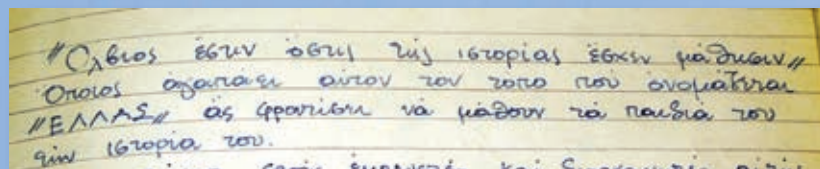 "Ολβιος ἐστιν ὁστις τῆς ιστορίας ἐσχεν μάθησιν"
Όποιος ἀγαπάει αὐτον τον τοπο που ὀνομάζεται
"ΕΛΛΑΣ" ἀς φροντίση νὰ μάθουν τὰ παιδιά του
τὴν ιστορία του.
καὶ